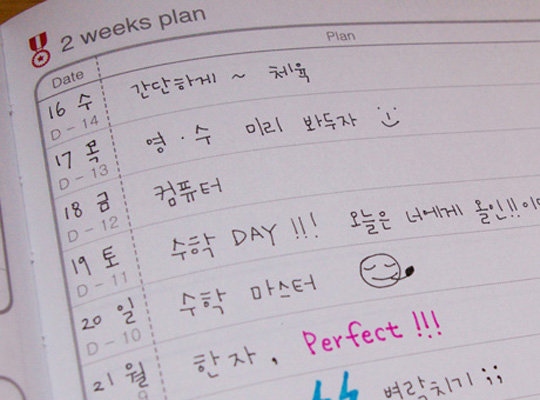 2 weeks plan
Date Plan
16 수 간단하게 ~ 체육
D - 14
17 목 영 · 수 미리 봐두자
D - 13
18 금 컴퓨터
D - 12
19 토 수학 DAY !!! 오늘은 너에게 올인!!
D - 11
20 일 수학 마스터
D - 10
21 월 한자, Perfect !!!
벼락치기 ;;